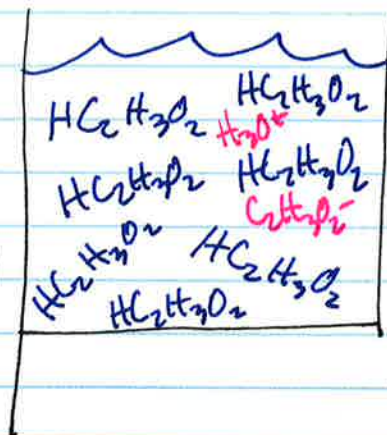 HC₂H₃O₂
HC₂H₃O₂
H₃O⁺
HC₂H₃O₂
HC₂H₃O₂
C₂H₃O₂⁻
HC₂H₃O₂
HC₂H₃O₂
HC₂H₃O₂